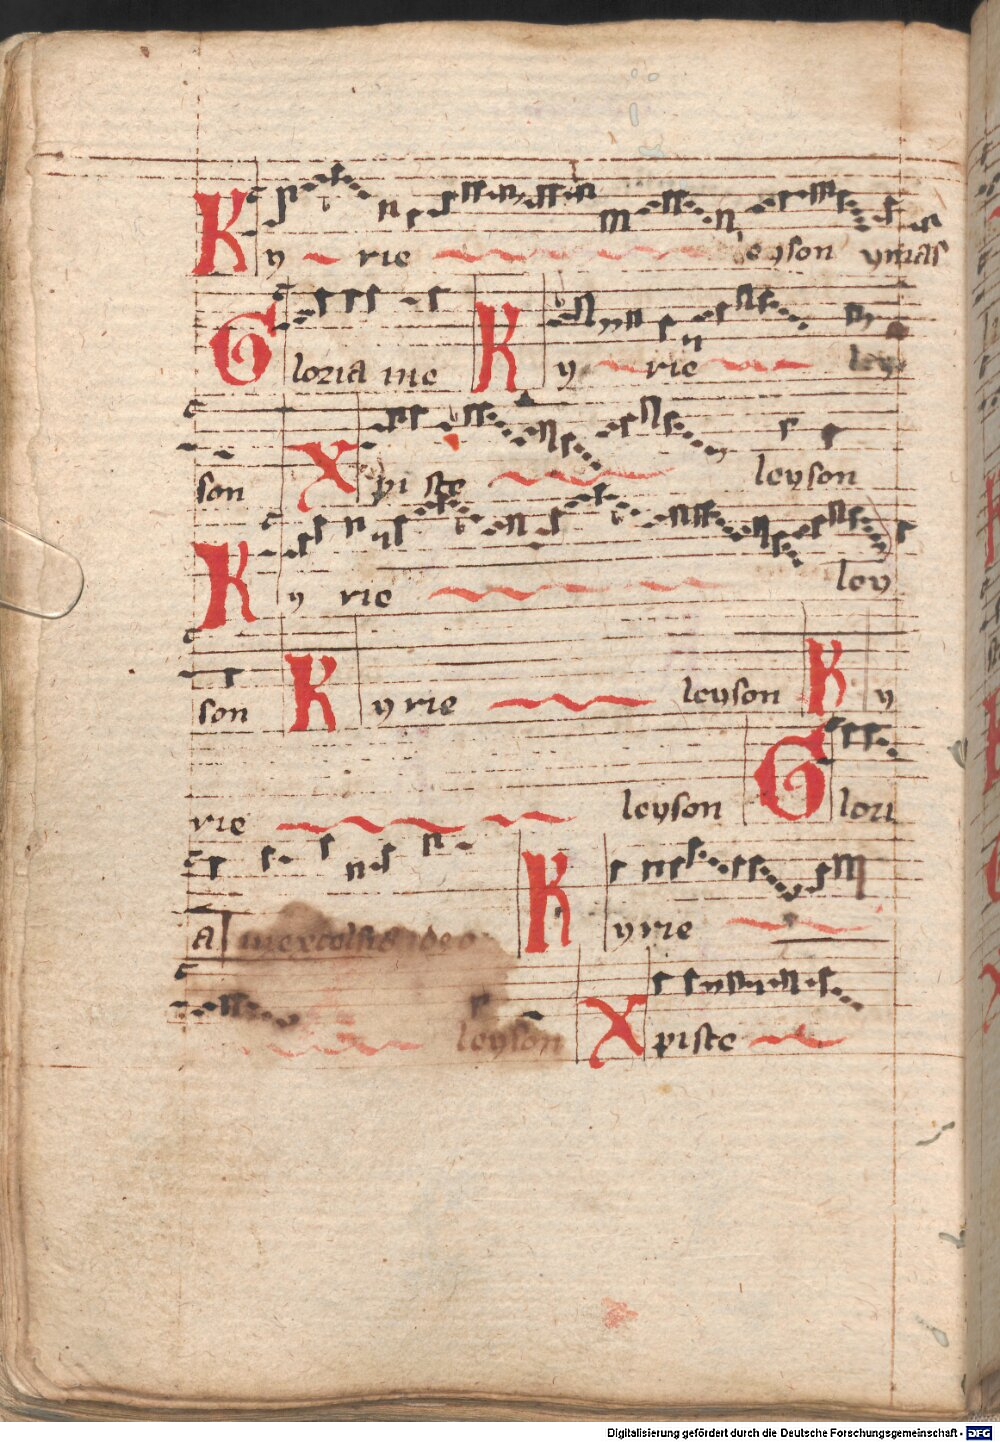 Ky rie leyson ymas
Gloria in e Ky rie ley
son Xpi ste leyson
Ky rie ley
son Kyrie leyson Ky
rie leyson Glori
a in excelsis deo Kyrie
leyson Xpiste
Digitalisierung gefördert durch die Deutsche Forschungsgemeinschaft - DFG